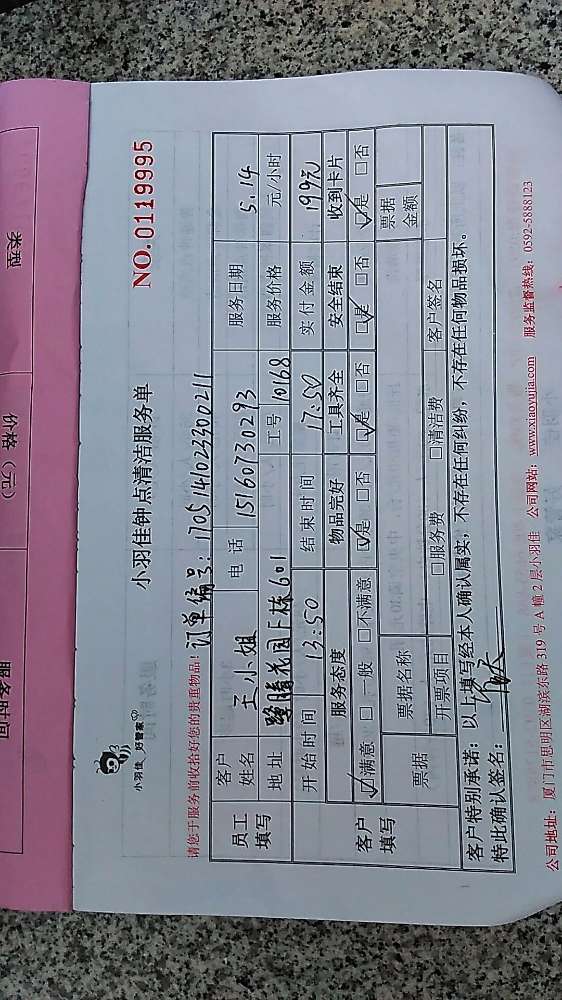 类型
价格（元）
服务时间
小羽佳 好管家
小羽佳钟点清洁服务单
NO.0119995
请您于服务前收拾好您的贵重物品！订单编号：170514102330021 1
员工填写 客户姓名 王小姐 电话 15160730293 服务日期 5.14
地址 花园 栋601 工号 10168 服务价格 元/小时
客户填写 开始时间 13:50 结束时间 17:50 实付金额 199元
服务态度 物品完好 工具齐全 安全结束 收到卡片
☑满意 □一般 □不满意 ☑是 □否 ☑是 □否 ☑是 □否 ☑是 □否
票据 票据名称 票据金额
开票项目 □服务费 □清洁费 客户签名
客户特别承诺：以上填写经本人确认属实，不存在任何纠纷，不存在任何物品损坏。
特此确认签名：
公司地址：厦门市思明区湖滨东路319号A幢2层小羽佳 公司网站：www.xiaoyujia.com 服务监督热线：0592-5888123